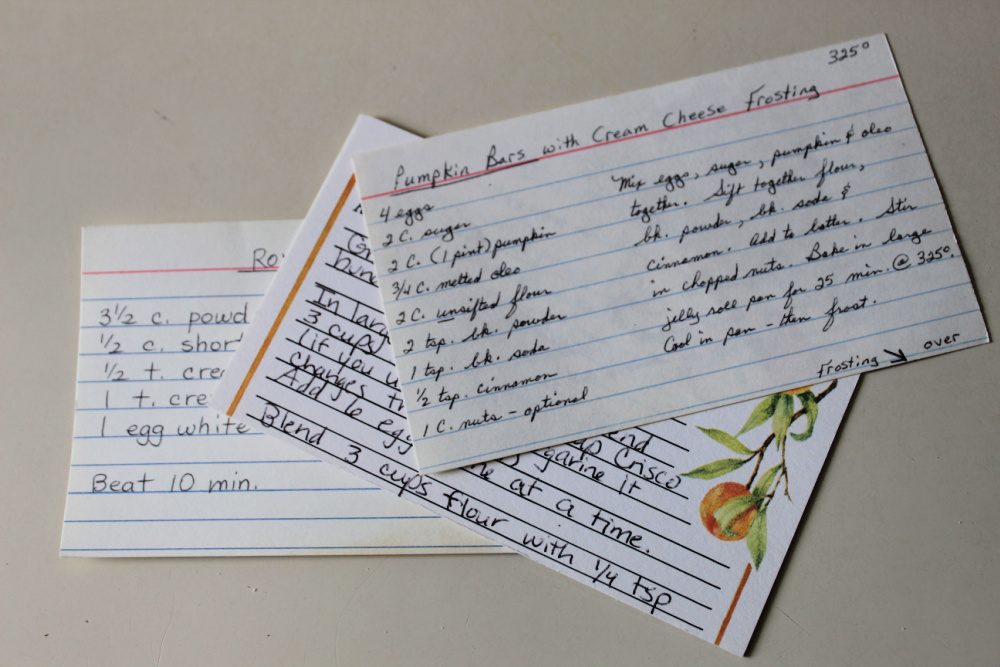 325°
Pumpkin Bars with Cream Cheese Frosting
4 eggs
2 C. sugar
2 C. (1 pint) pumpkin
3/4 C. melted oleo
2 C. unsifted flour
2 tsp. bk. powder
1 tsp. bk. soda
1/2 tsp. cinnamon
1 C. nuts - optional
Mix eggs, sugar, pumpkin & oleo
together. Sift together flour,
bk. powder, bk. soda &
cinnamon. Add to batter. Stir
in chopped nuts. Bake in large
jelly roll pan for 25 min. @ 325°.
Cool in pan - then frost.
Frosting → over
In larg
3 cups
(if you u
changes th
Add 6 egg
Crisco
garine it
ne at a time.
Blend 3 cups flour with 1/4 tsp
Ro
3 1/2 c. powd
1/2 c. shor
1/2 t. cre
1 t. cre
1 egg white
Beat 10 min.